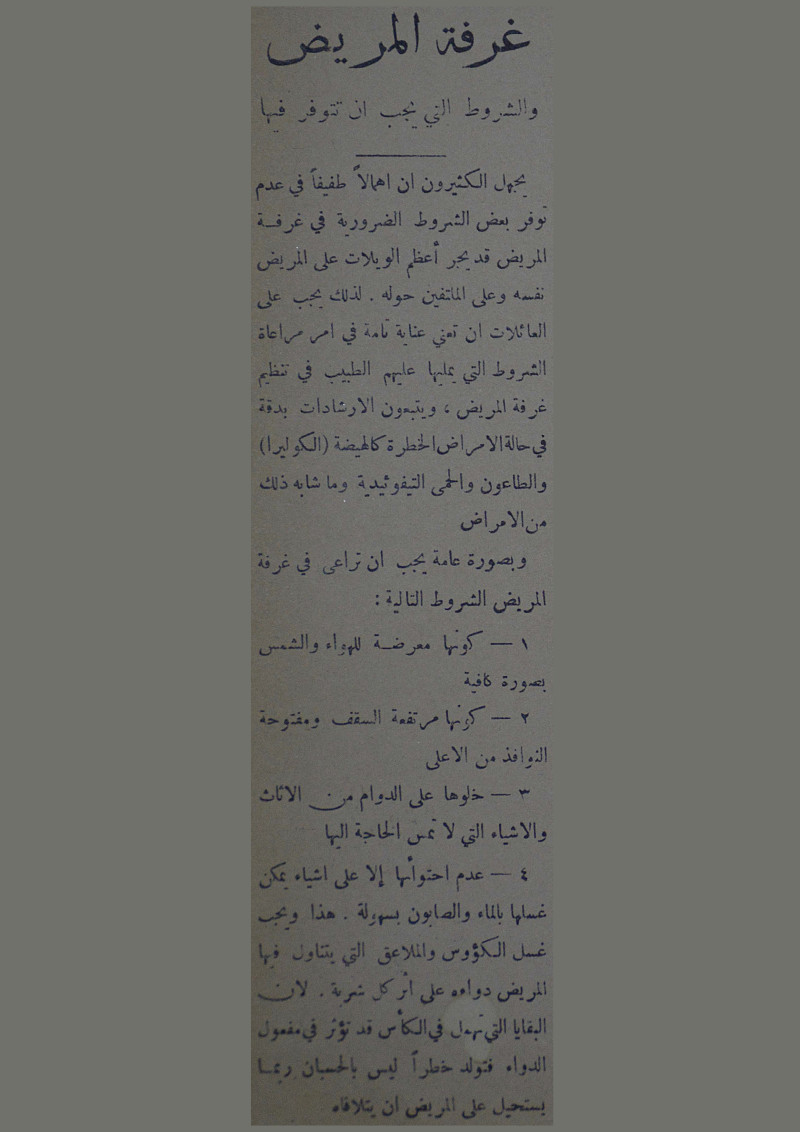 غرفة المريض
والشروط التي يجب ان تتوفر فيها
يجهل الكثيرون ان اهمالاً طفيفاً في عدم
توفر بعض الشروط الضرورية في غرفة
المريض قد يجر أعظم الويلات على المريض
نفسه وعلى الملتفين حوله . لذلك يجب على
العائلات ان تعني عناية تامة في امر مراعاة
الشروط التي يمليها عليهم الطبيب في تنظيم
غرفة المريض ، ويتبعون الارشادات بدقة
في حالة الامراض الخطرة كالهيضة (الكوليرا)
والطاعون والحمى التيفوئيدية وما شابه ذلك
من الامراض
وبصورة عامة يجب ان تراعى في غرفة
المريض الشروط التالية :
١ — كونها معرضة للهواء والشمس
بصورة كافية
٢ — كونها مرتفعة السقف ومفتوحة
النوافذ من الاعلى
٣ — خلوها على الدوام من الاثاث
والاشياء التي لا تمس الحاجة اليها
٤ — عدم احتوائها إلا على اشياء يمكن
غسلها بالماء والصابون بسهولة . هذا ويجب
غسل الكؤوس والملاعق التي يتناول فيها
المريض دواءه على اثر كل شربة . لان
البقايا التي تهمل في الكأس قد تؤثر في مفعول
الدواء فتولد خطراً ليس بالحسبان ربما
يستحيل على المريض ان يتلافاه